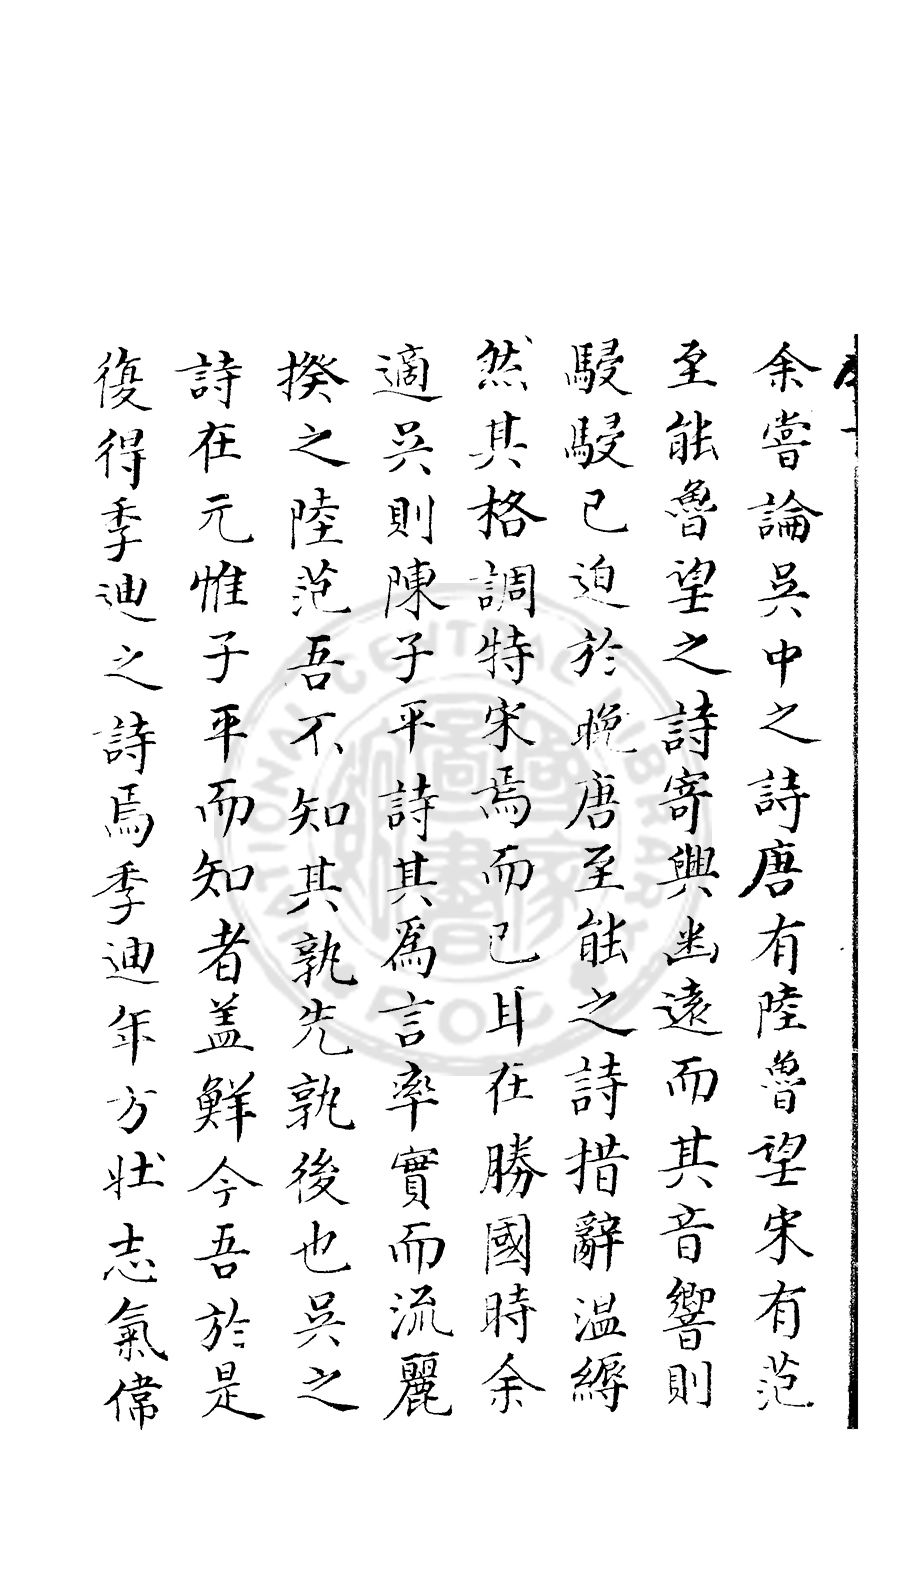 余嘗論吳中之詩唐有陸魯望宋有范
至能魯望之詩寄興幽遠而其音響則
駸駸已迫於晚唐至能之詩措辭温縟
然其格調特宋焉而已耳在勝國時余
適吳則陳子平詩其爲言率實而流麗
揆之陸范吾不知其孰先孰後也吳之
詩在元惟子平而知者盖鮮今吾於是
復得季迪之詩焉季迪年方壯志氣偉
NATIONAL CENTRAL LIBRARY